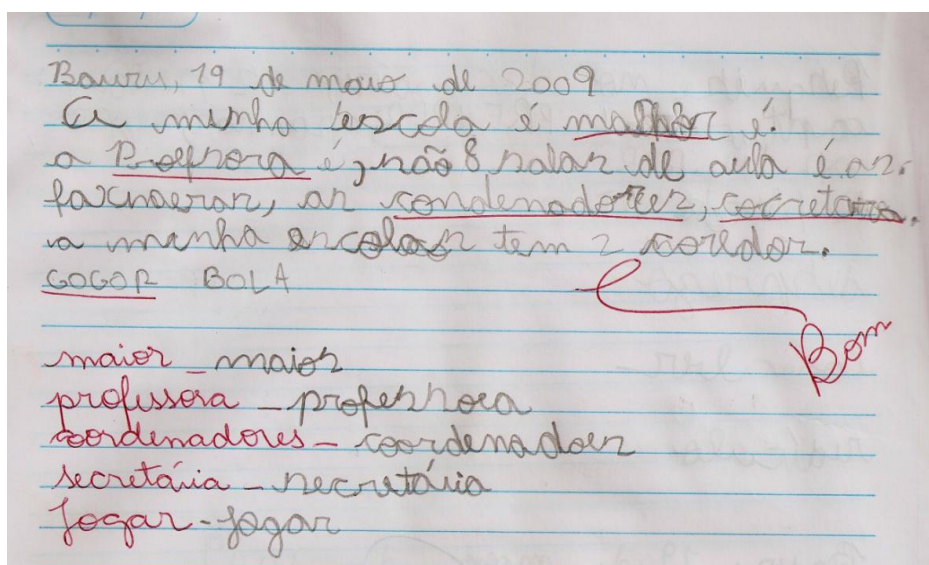 Bauru, 19 de maio de 2009
A minha escola é maior é.
a Profesora é, não 8 salas de aula é as.
faxineiras, as condenadores, cocretaria.
a minha escolas tem 2 coredor.
GOGOR BOLA
Bom
maior - maior
professora - professora
coordenadores - coordenadoes
secretária - secretária
jogar - jogar